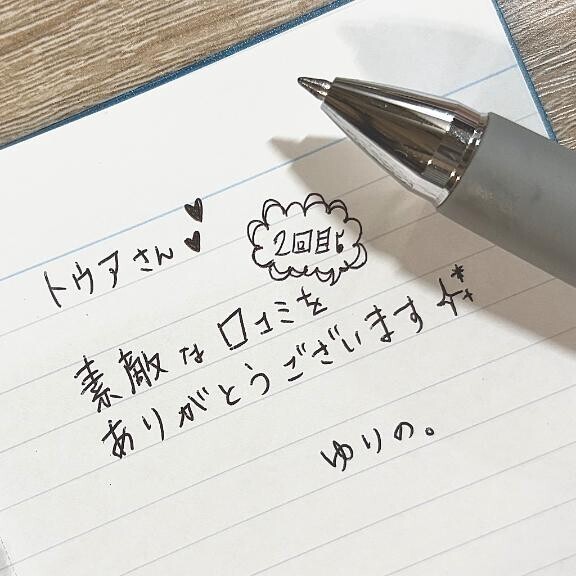 トウアさん♥♥
2回目も
素敵な口コミを
ありがとうございます
ゆりの。